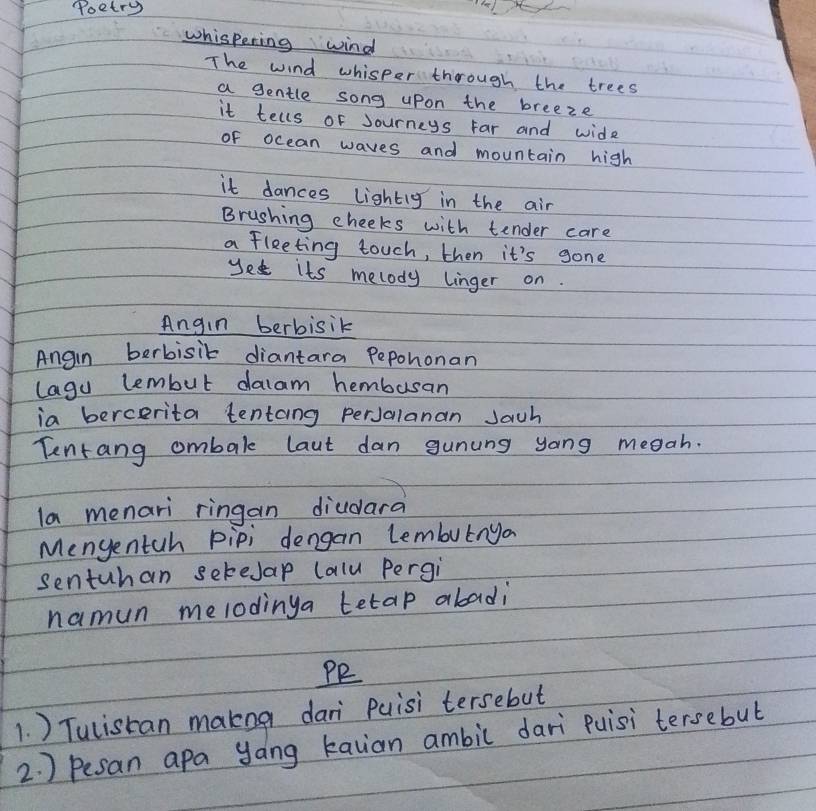 Poetry
Whispering wind
The wind whisper through the trees
a gentle song upon the breeze
it tells of Journeys far and wide
of ocean waves and mountain high
it dances lightly in the air
Brushing cheeks with tender care
a fleeting touch, then it's gone
yet its melody linger on.
Angin berbisik
Angin berbisik diantara Pepohonan
lagu lembut dalam hembusan
ia bercerita tentang perJalanan Jauh
Tentang ombak laut dan gunung yang megah.
Ia menari ringan diudara
Menyentuh Pipi dengan lembutnya
sentuhan sekeJap lalu Pergi
namun melodinya tetap abadi
PR
1.) Tuliskan makna dari Puisi tersebut
2.) Pesan apa yang kalian ambil dari Puisi tersebut